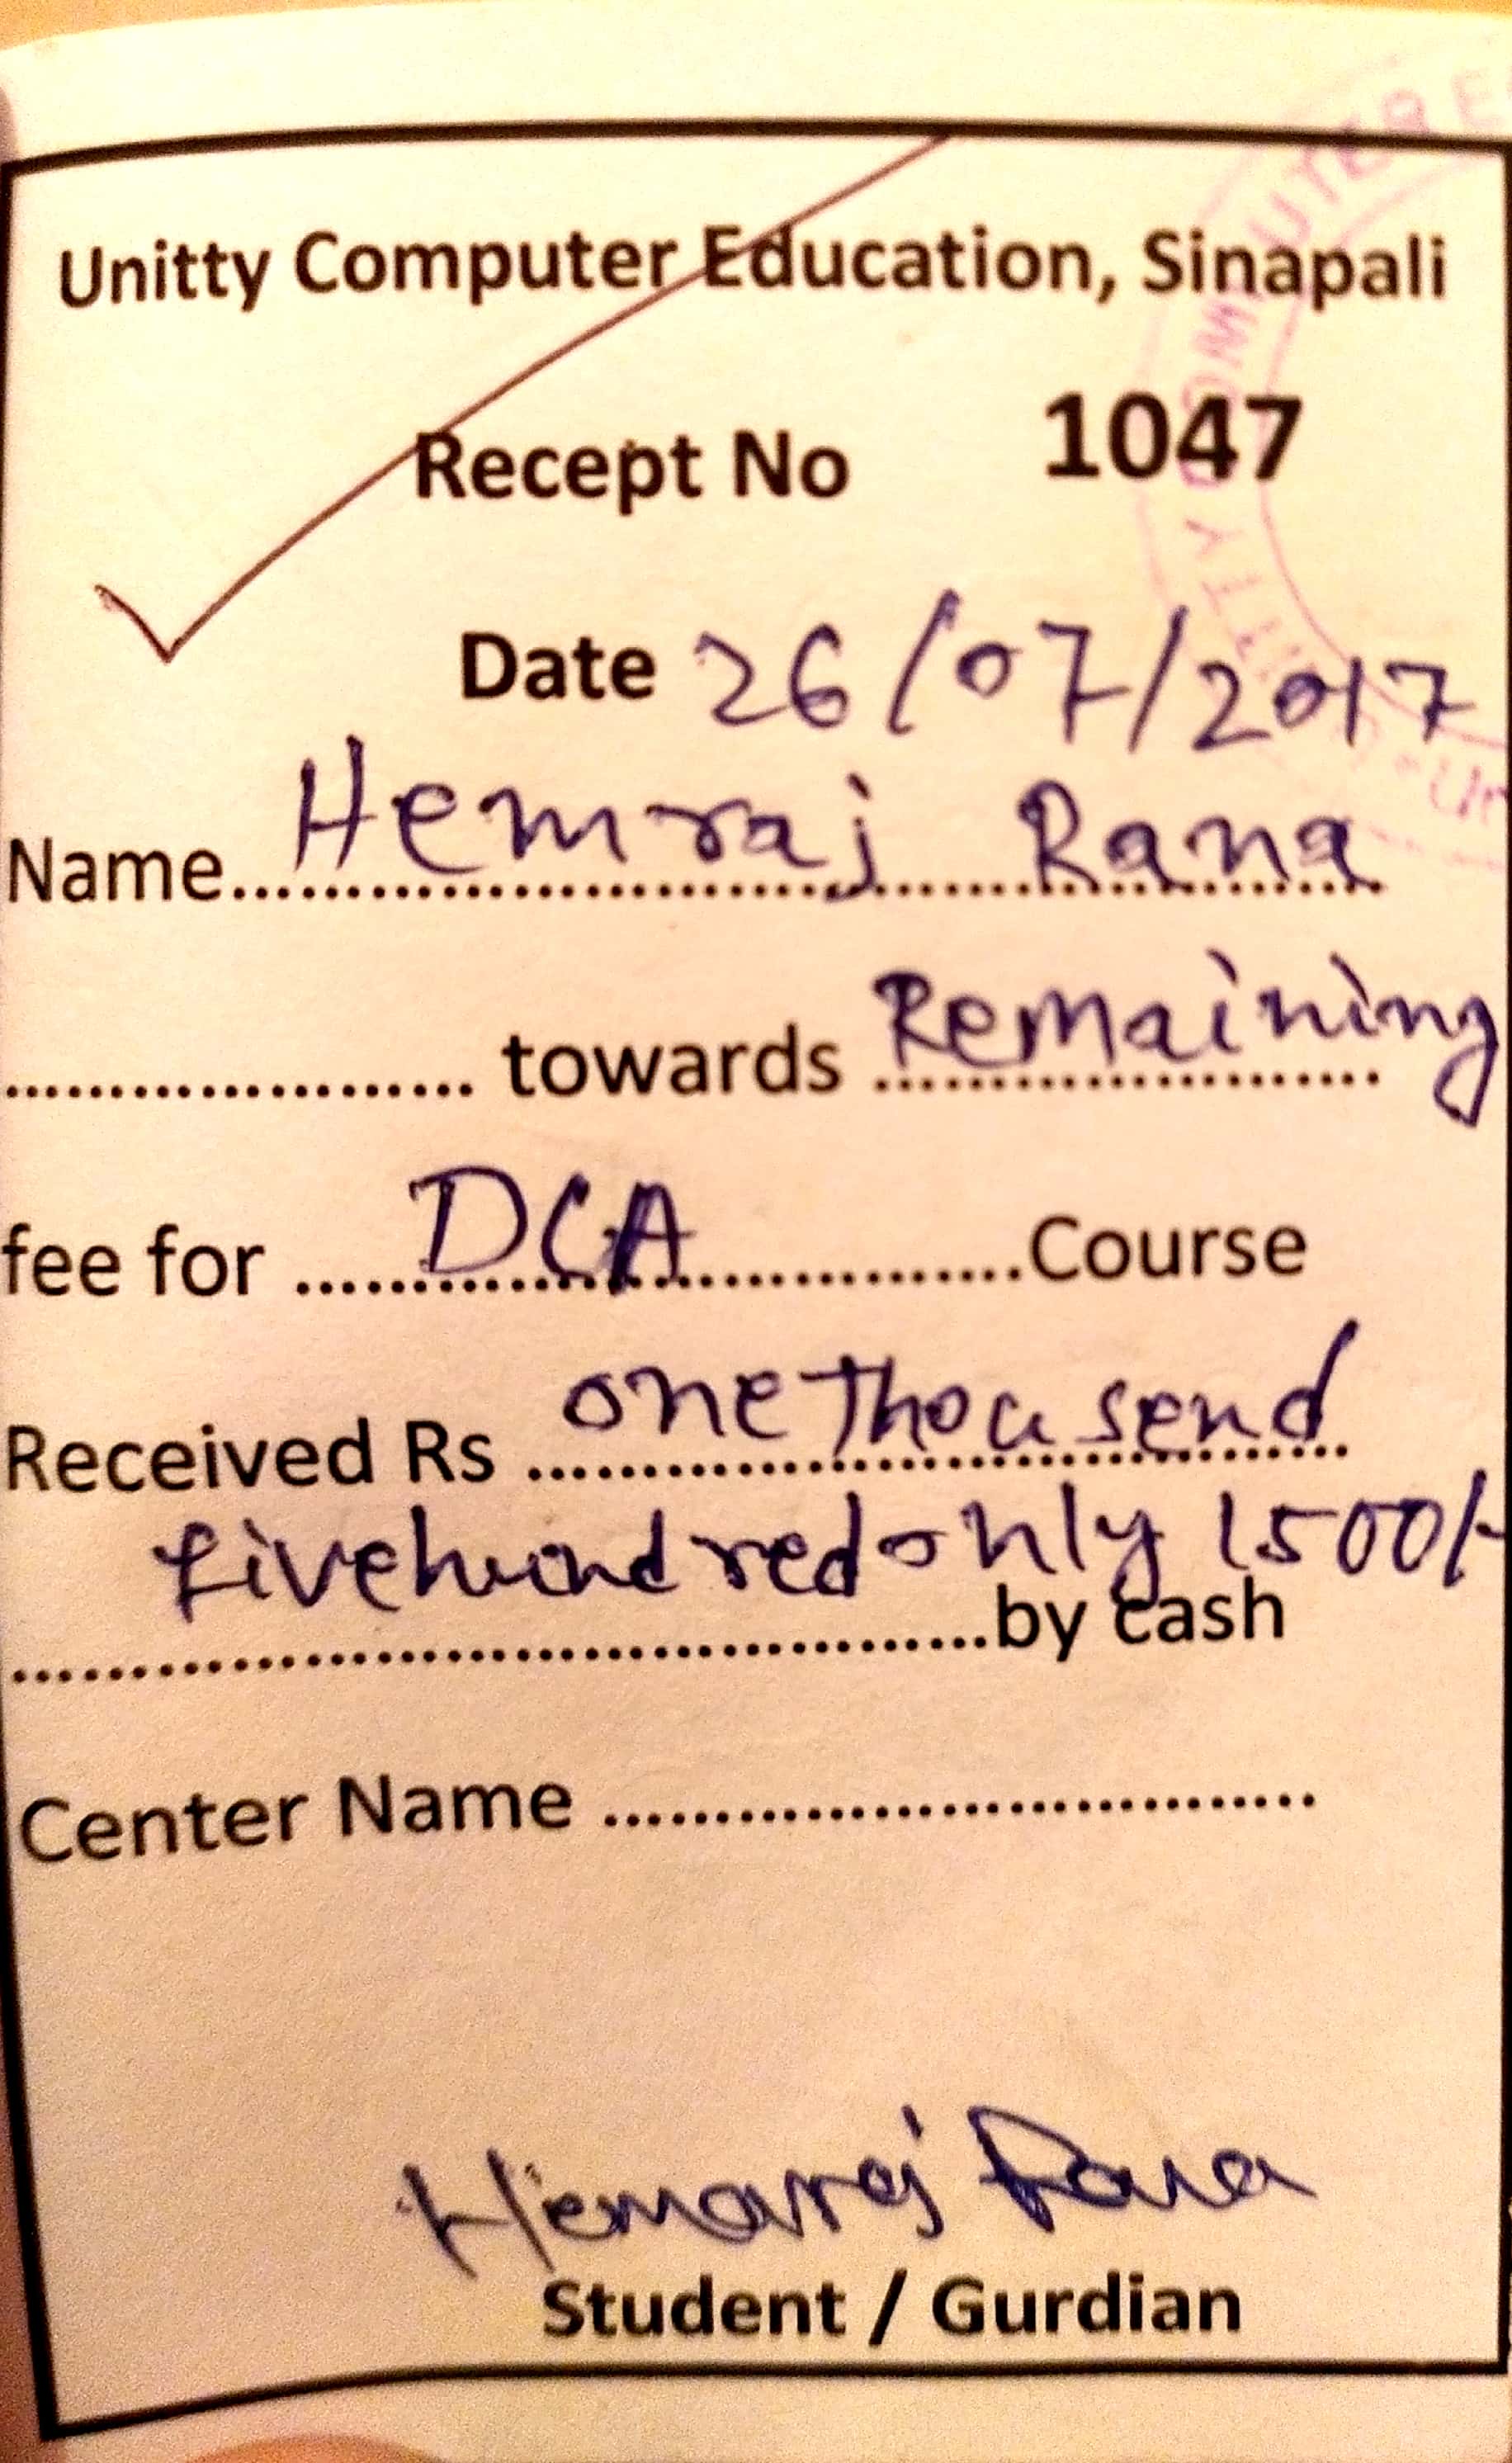 Unitty Computer Education, Sinapali
Recept No 1047
Date 26/07/2017
Name.......Hemraj Rana
.................... towards Remaining
fee for ....DCA..............Course
Received Rs one thousend
fivehundred only 1500/-
..........................................by cash
Center Name ..............................
Hemaraj Rana
Student / Gurdian